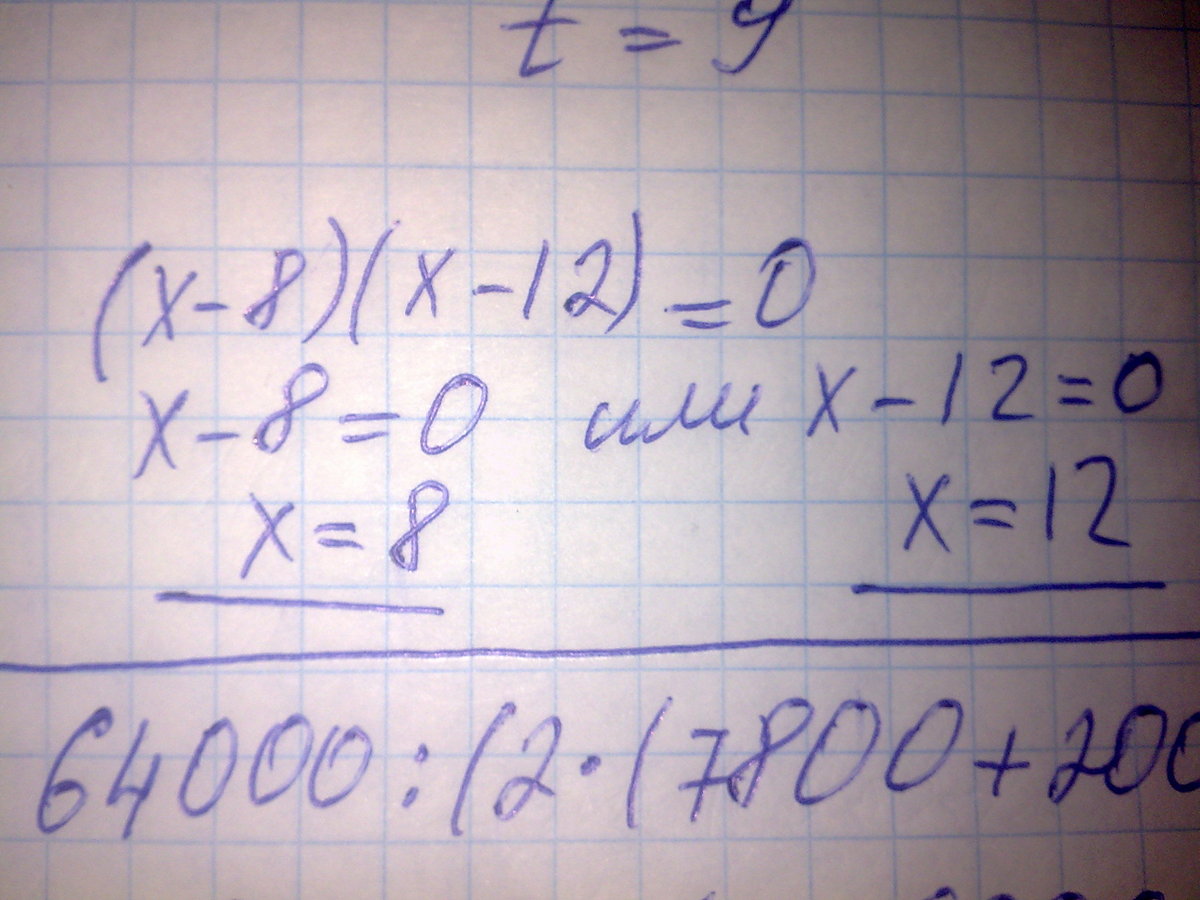 t = 9
(x-8)(x-12)=0
x-8=0 или x-12=0
x=8 x=12
64000:(2·(7800+200